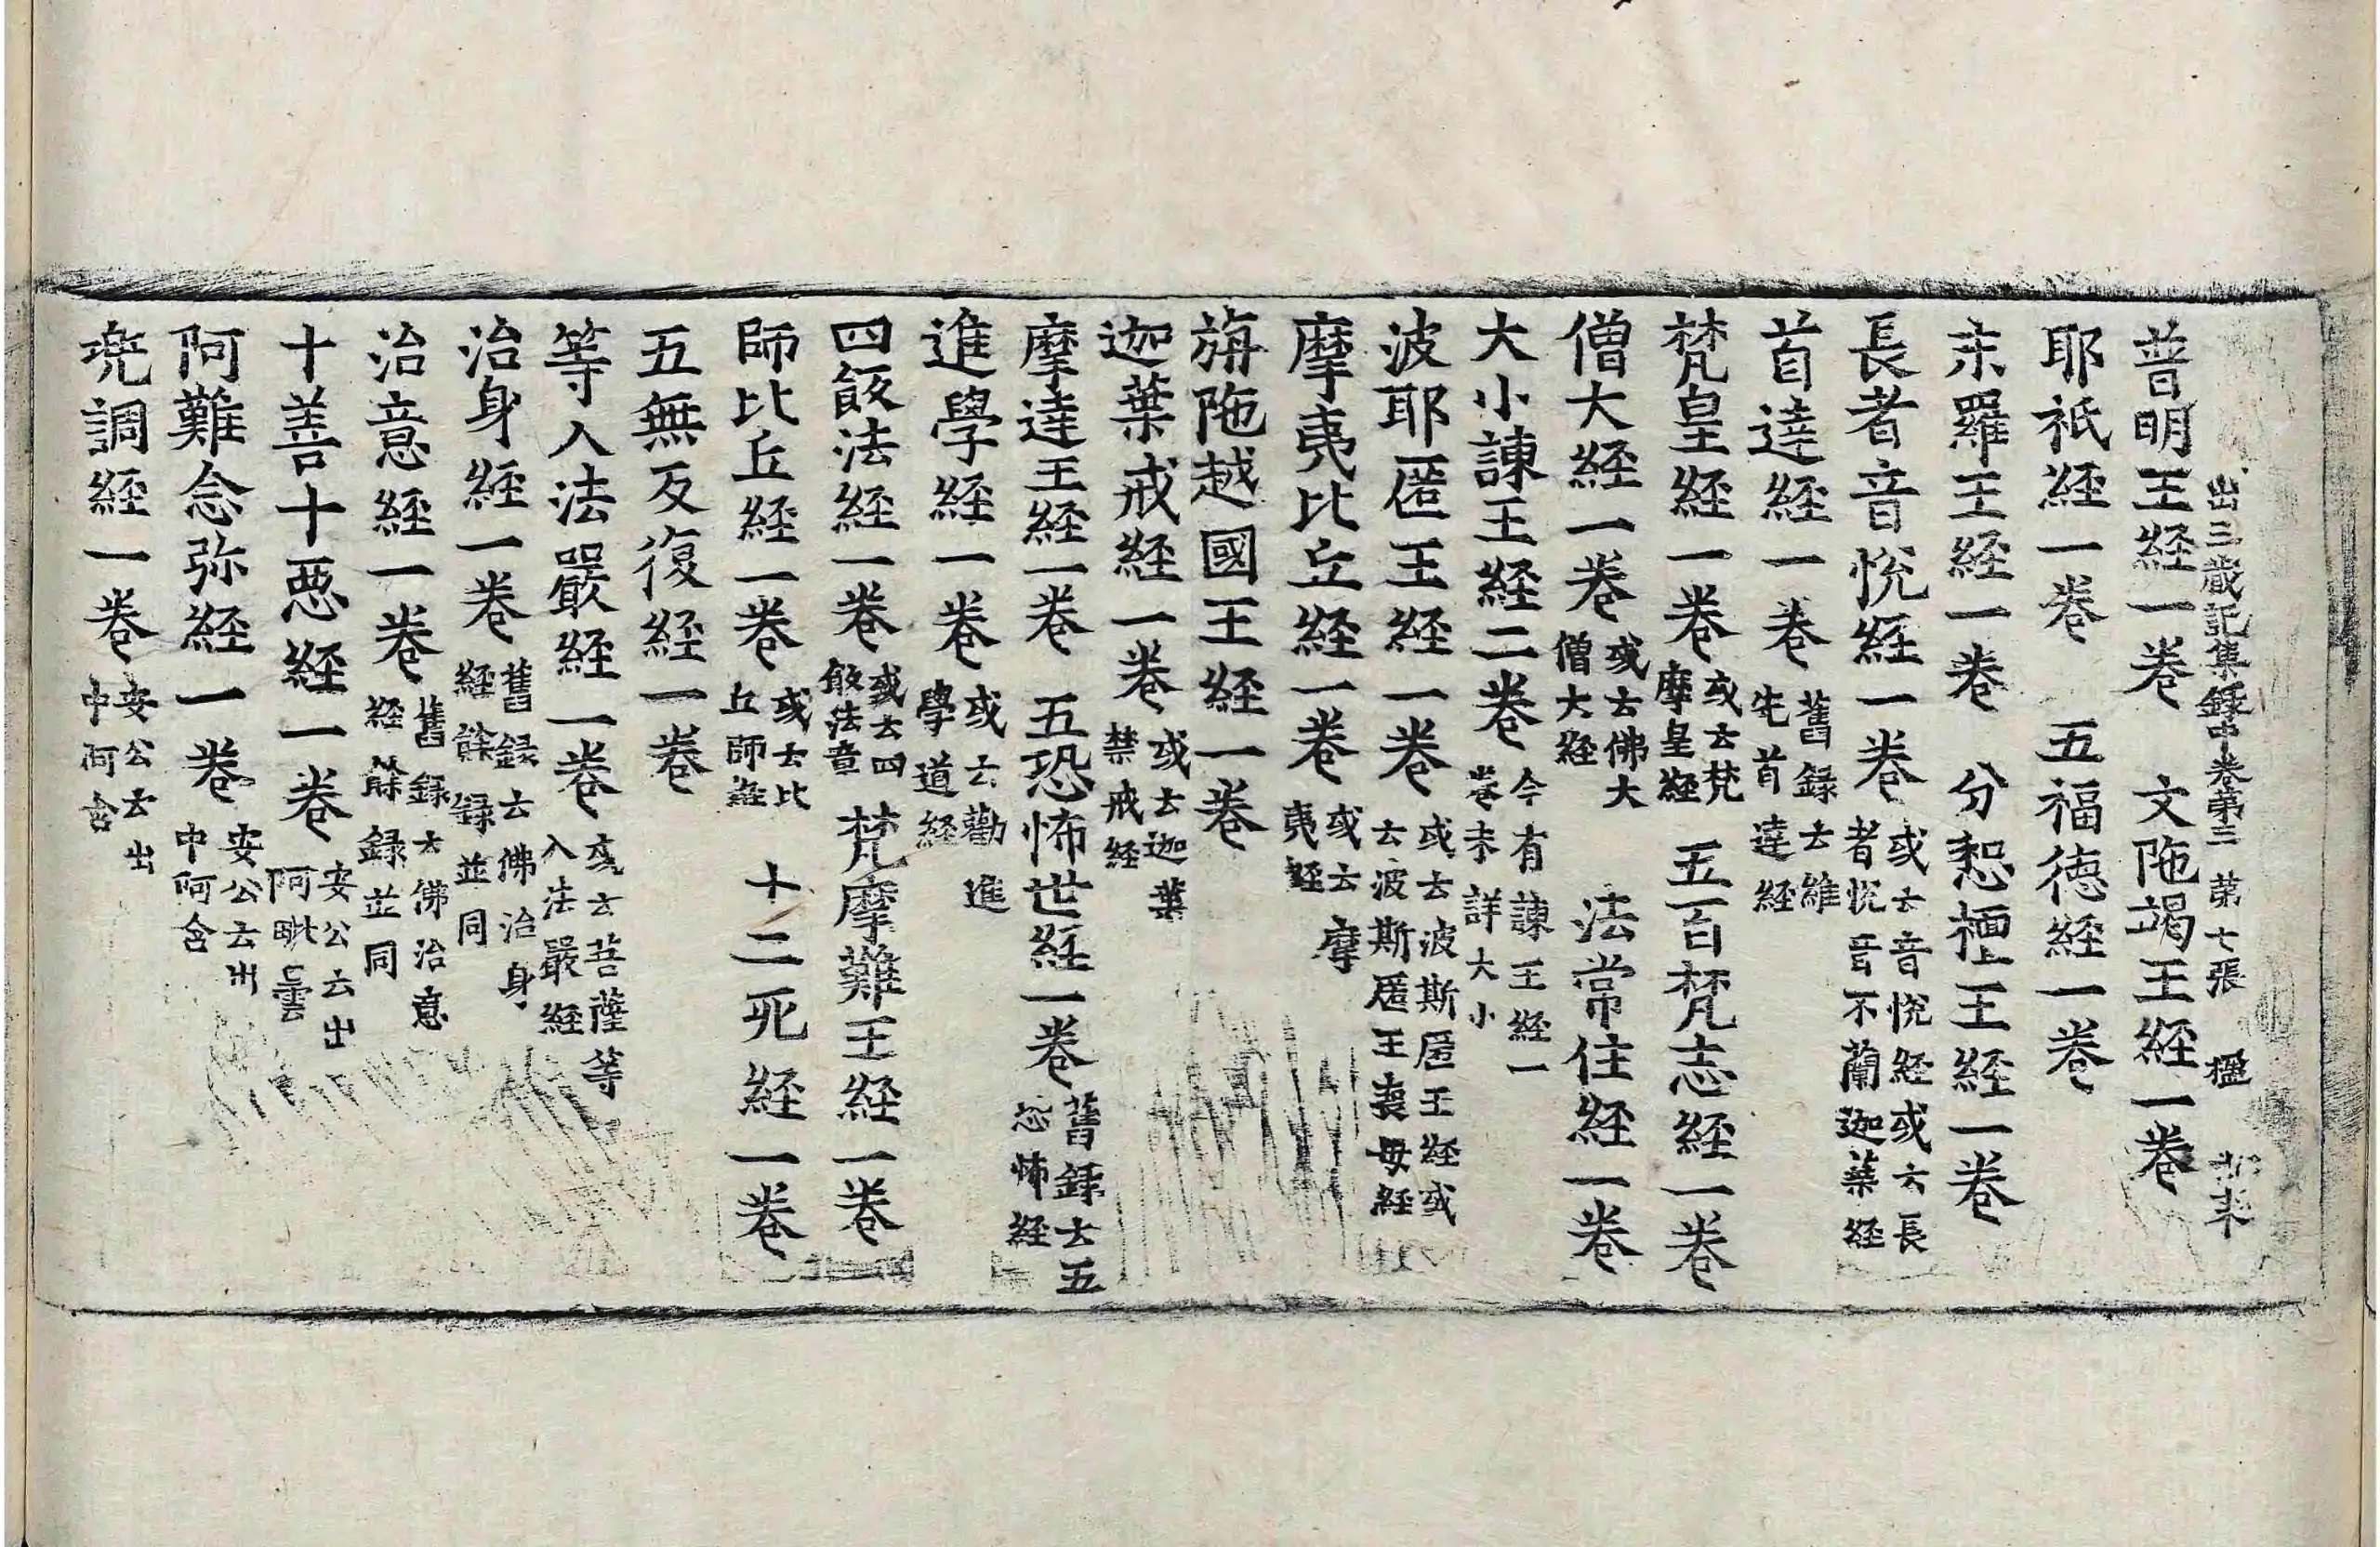 出三蔵記集録中卷第三　第七張　楹
普明王経一卷　文陁竭王経一卷
耶祇経一卷　五福徳経一卷
末羅王経一卷　分惒檀王経一卷
長者音悅経一卷或云音悅経或云長者悅音不蘭迦葉経
首達経一卷舊録云維先首達経
梵皇経一卷或云梵摩皇経　五百梵志経一卷
僧大経一卷或云佛大僧大経　法常住経一卷
大小諫王経二卷今有諫王経一卷未詳大小
波耶匿王経一卷或云波斯匿王経或云波斯匿王喪母経
摩夷比丘経一卷或云摩夷経
旃陁越國王経一卷
迦葉戒経一卷或云迦葉禁戒経
摩達王経一卷　五恐怖世経一卷舊録云五恐怖経
進學経一卷或云勸進學道経
四飯法経一卷或云四飯法章　梵摩難王経一卷
師比丘経一卷或云比丘師経　十二死経一卷
五無反復経一卷
等入法嚴経一卷或云菩薩等入法嚴経
治身経一卷舊録云佛治身経餘録並同
治意経一卷舊録云佛治意経餘録並同
十善十惡経一卷安公云出阿毗曇
阿難念弥経一卷安公云出中阿含
兜調経一卷安公云出中阿含